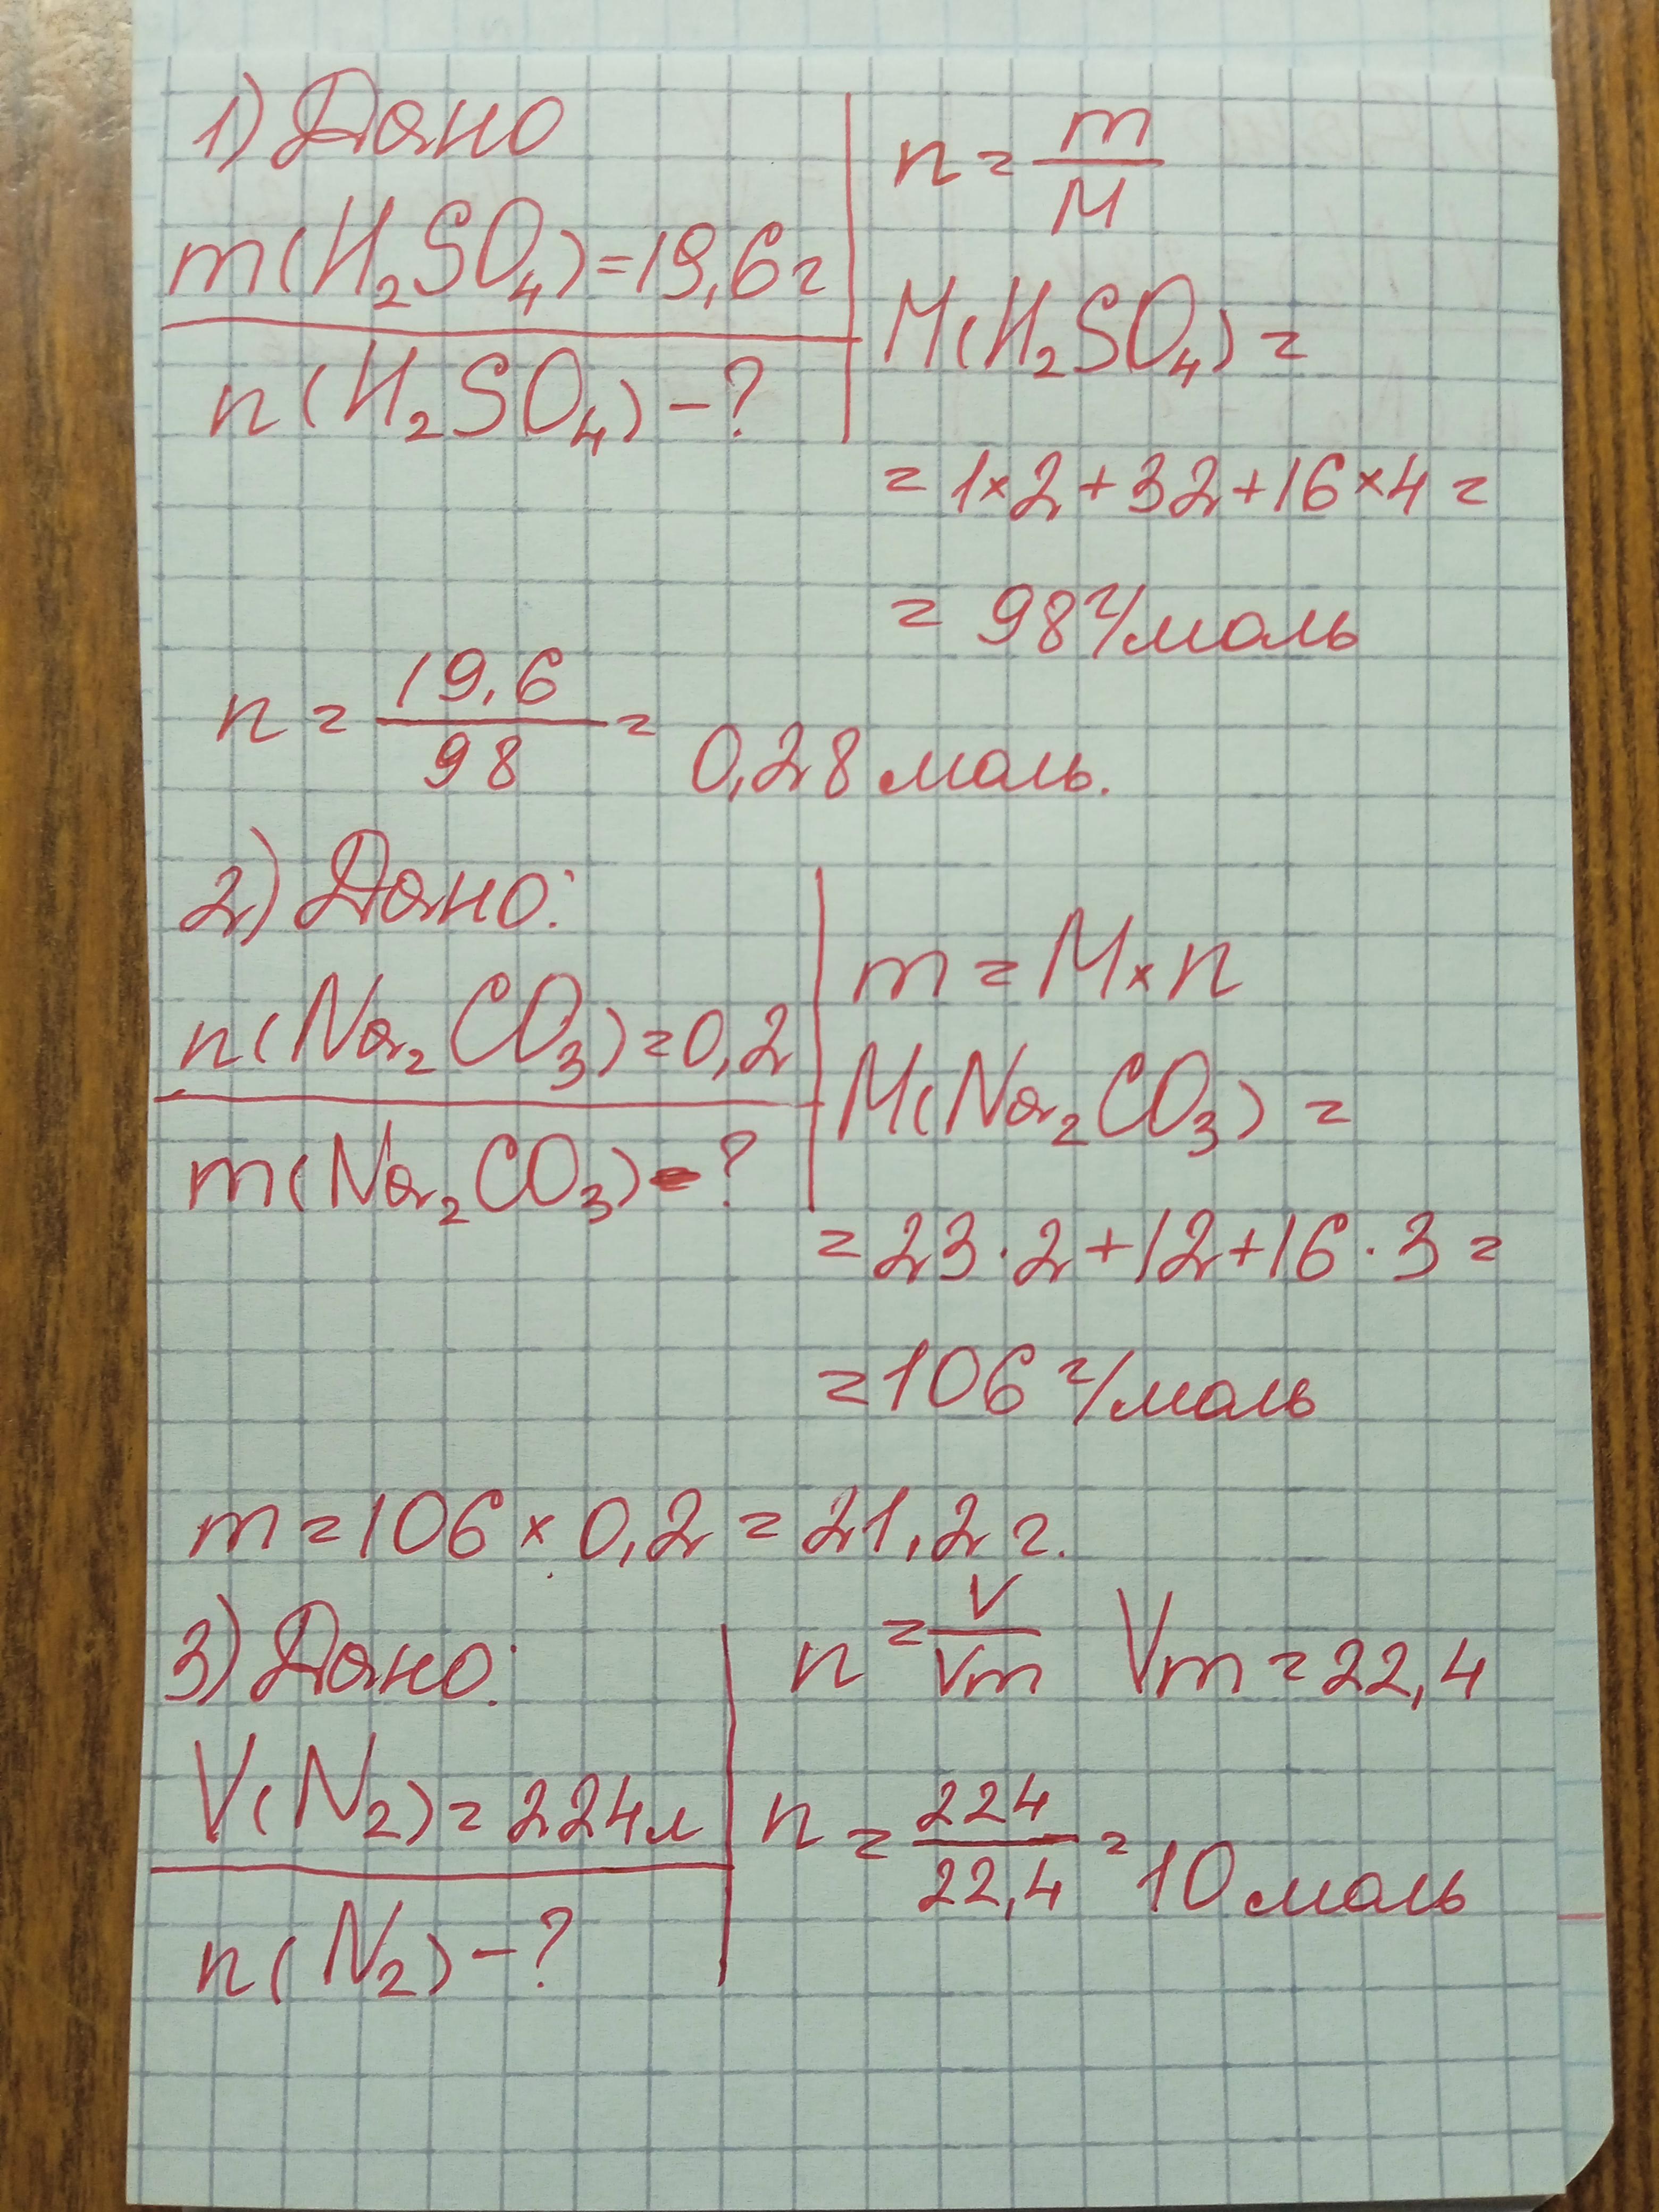 1) Дано
m(H₂SO₄)=19,6г
n(H₂SO₄)-?
n = m/M
M(H₂SO₄) =
= 1×2+32+16×4 =
= 98 г/моль
n = 19,6/98 = 0,28 моль.
2) Дано:
n(Na₂CO₃)=0,2
m(Na₂CO₃)-?
m = M×n
M(Na₂CO₃) =
= 23·2+12+16·3 =
=106 г/моль
m=106×0,2=21,2 г.
3) Дано:
V(N₂)=224л
n(N₂)-?
n = V/Vm Vm=22,4
n = 224/22,4 = 10 моль